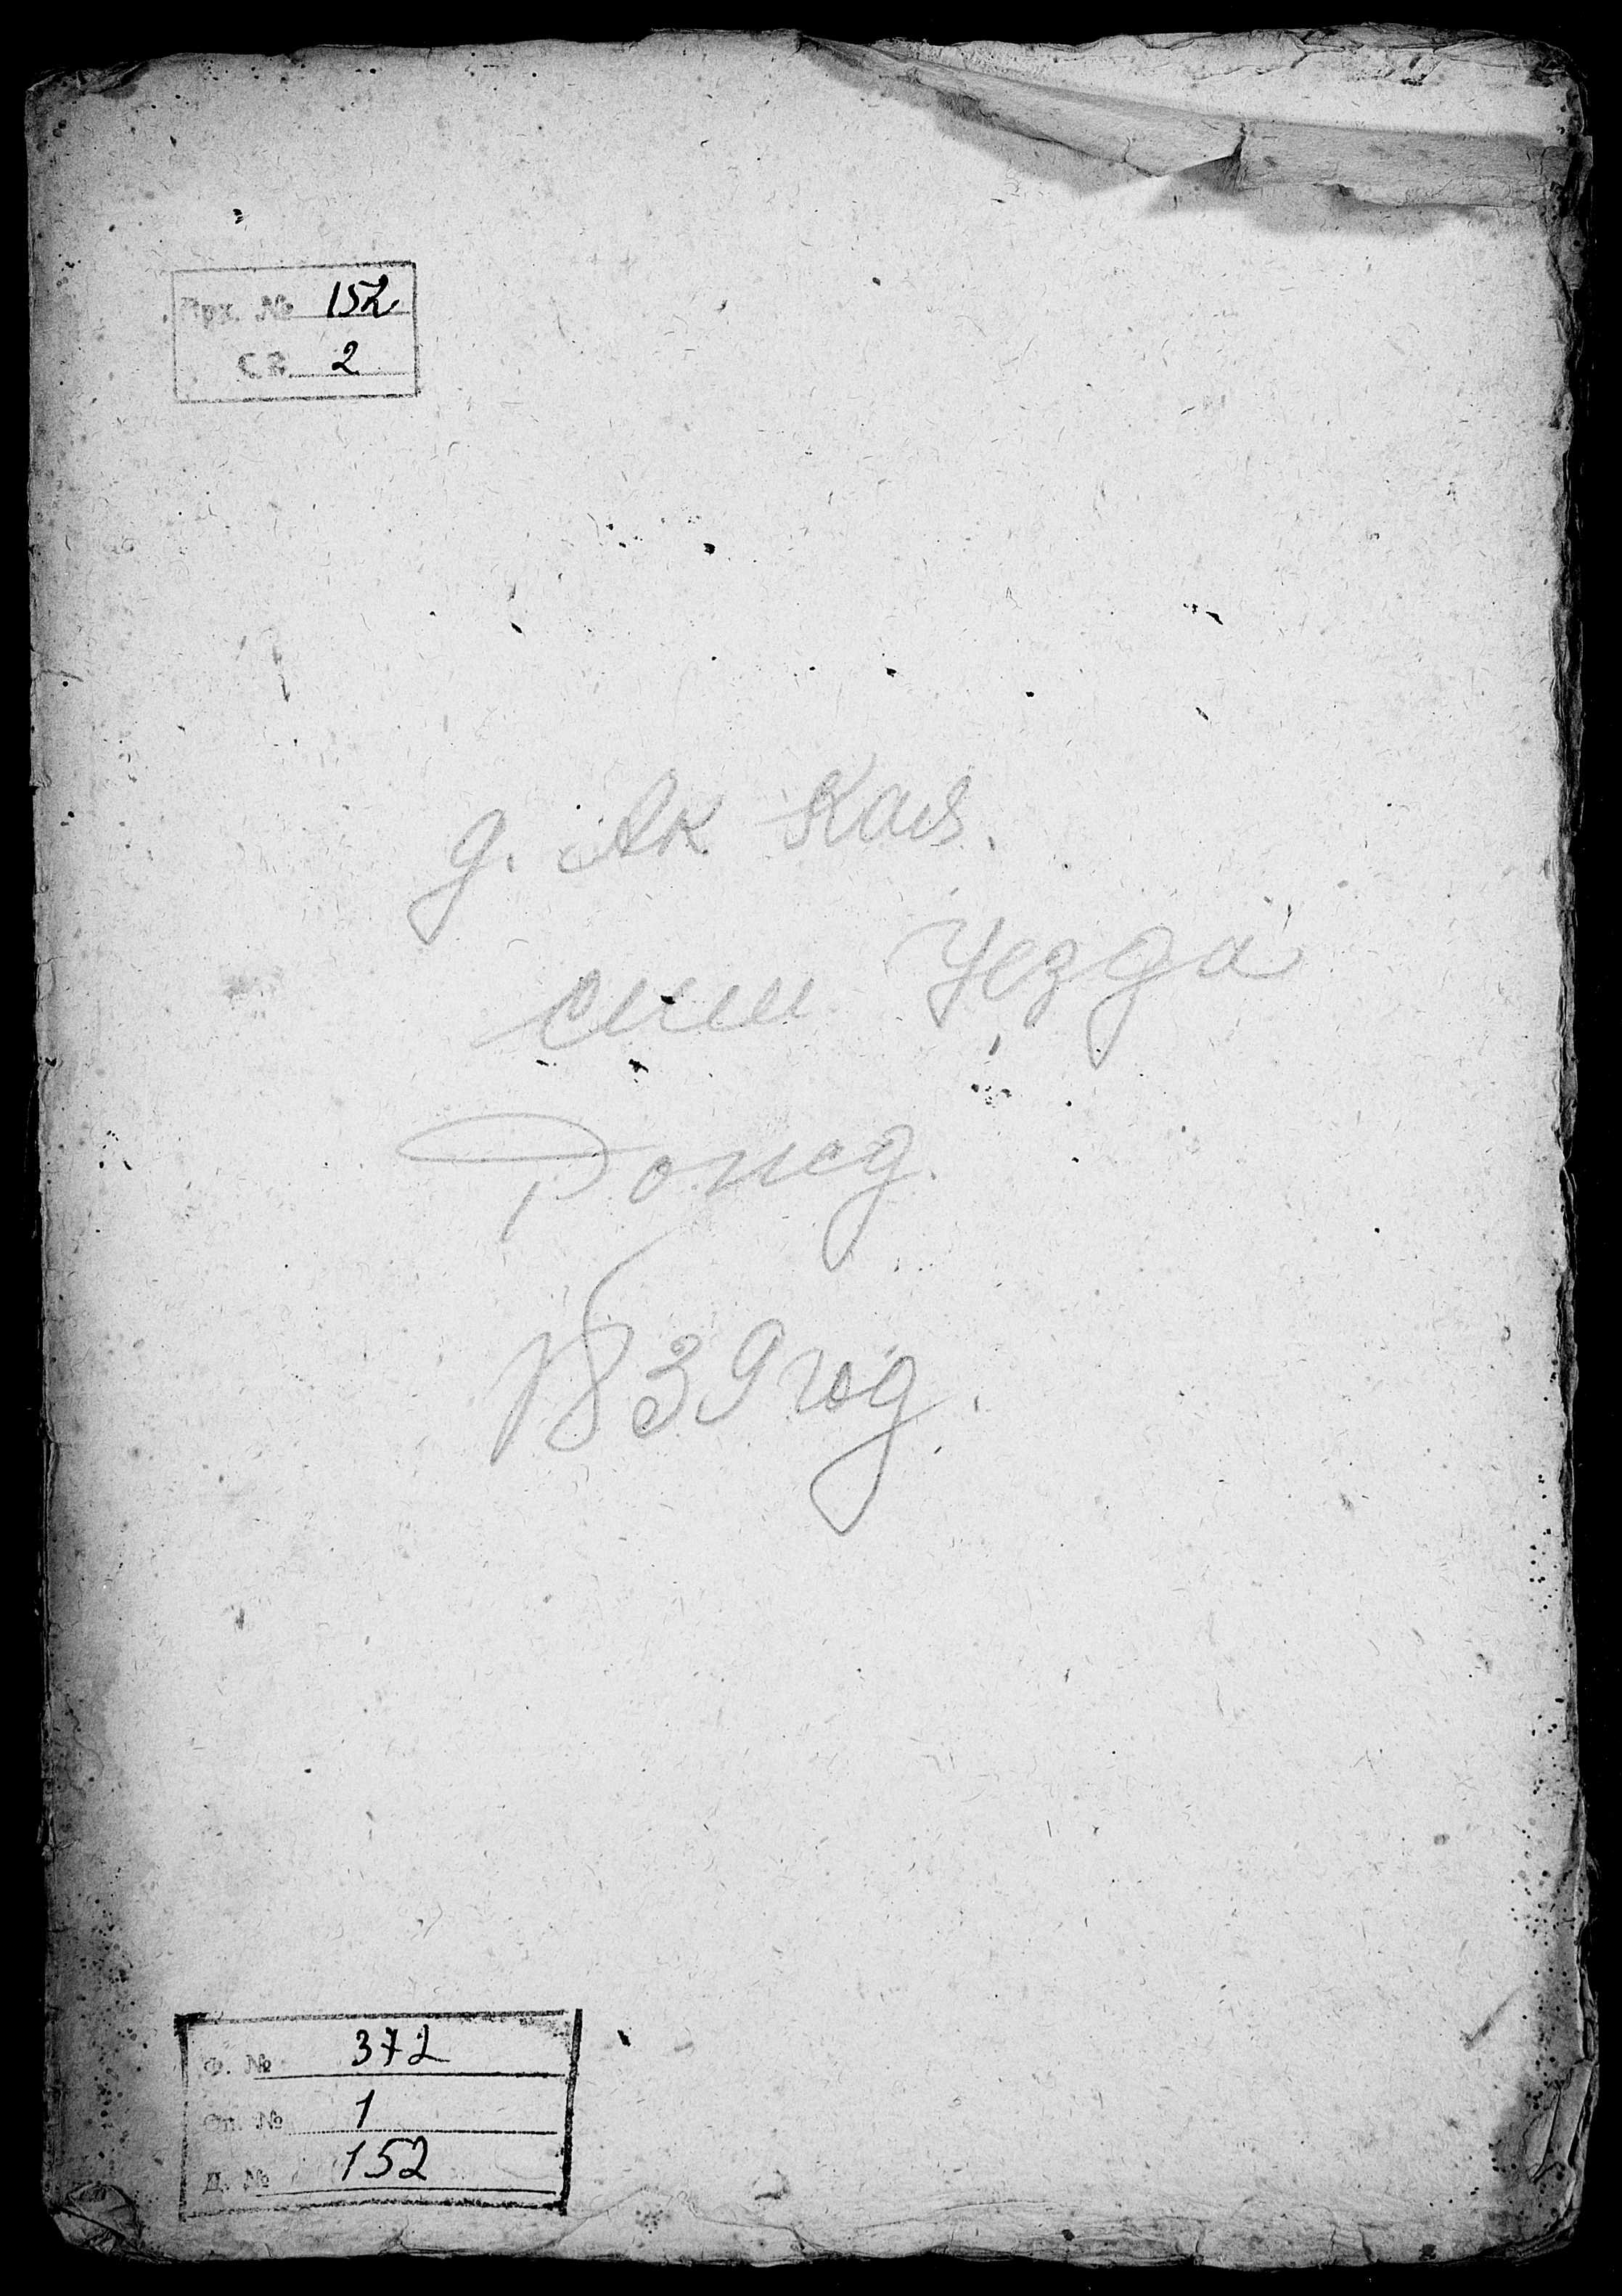 Арх. № 152
СВ 2
д. Ак Кая.
сим Уезда
Рожд.
1839 год.
Ф. № 372
Оп. № 1
Д. № 152